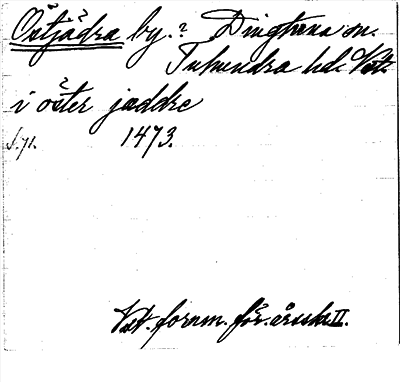 Östjädra by.? Dingtuna sn.
Tuhundra hd. Vstm.
i öster jaddre
s. 71. 1473.
Vst. fornm. för. årsskr. II.